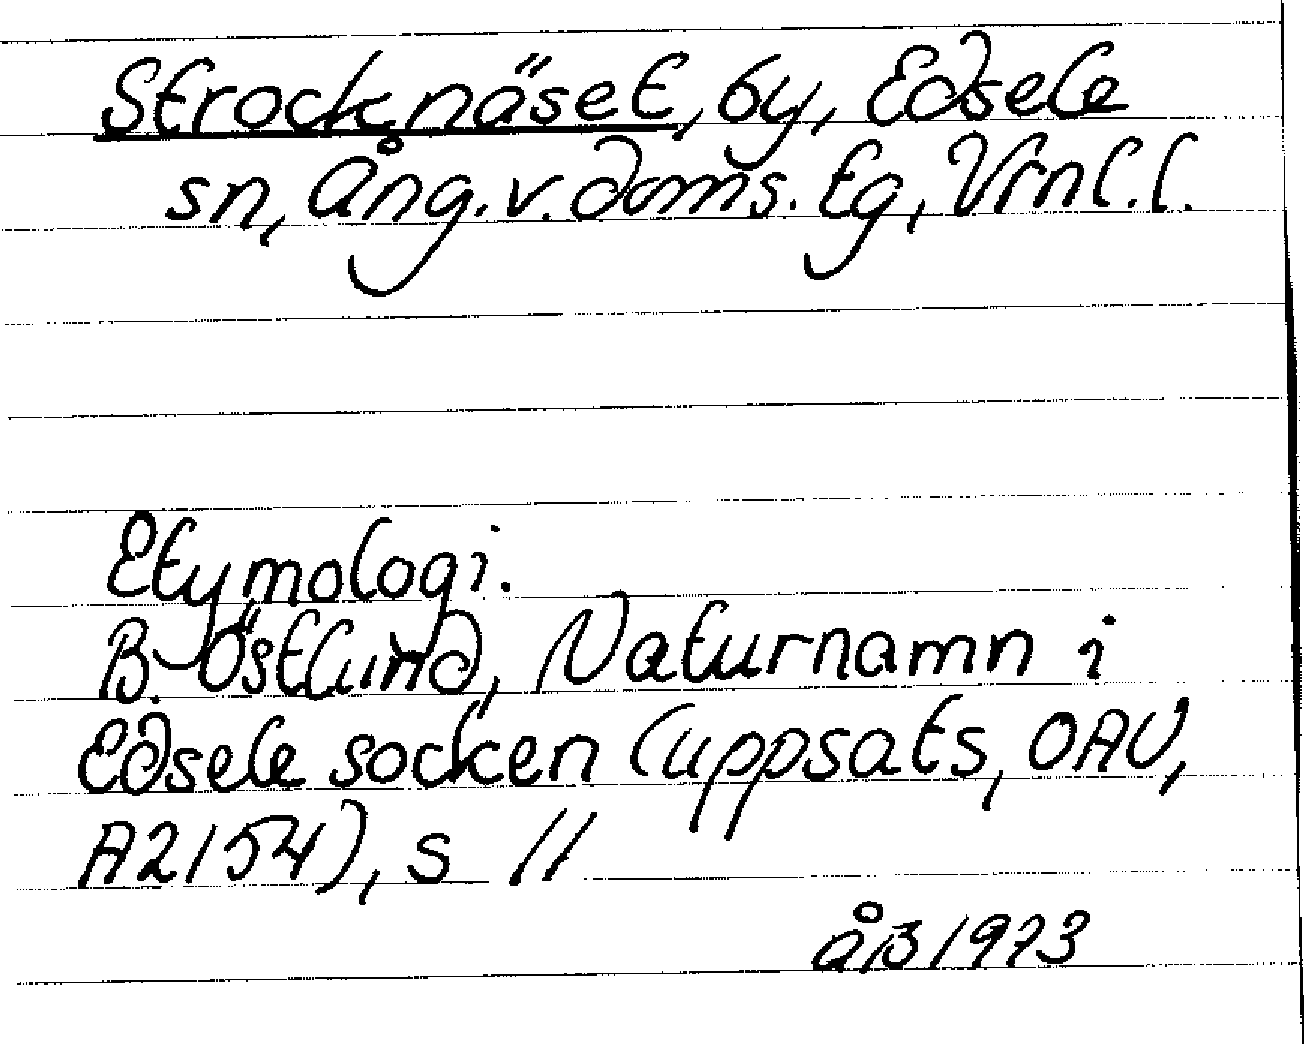 Strocknäset, by, Edsele
sn, Ång. v. doms. tg, Vrnl. l.
Etymologi.
B. Östlund, Naturnamn i
Edsele socken (uppsats, OAU,
A2154), s 11
ÅB 1973